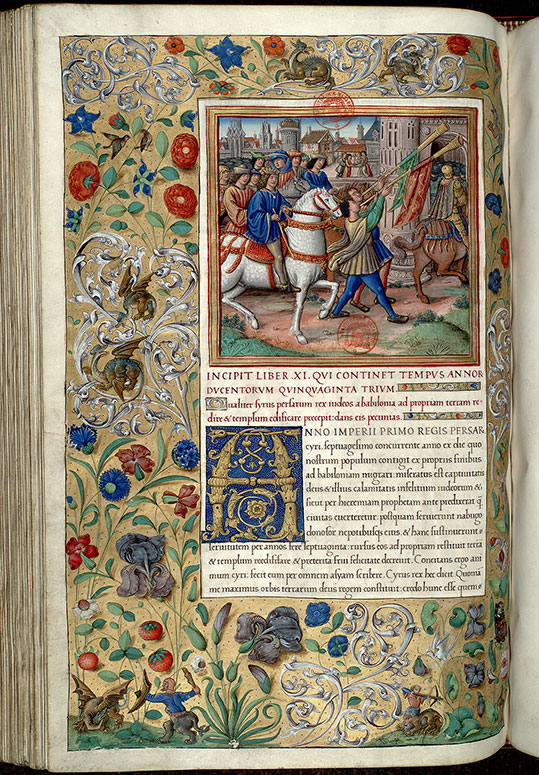 INCIPIT LIBER .XI. QVI CONTINET TEMPVS ANNOR
DVCENTORVM QVINQVAGINTA TRIVM.
Qualiter syrus persarum rex iudeos a babilonia ad propriam terram re
dire & templum edificare precepit: dans eis pecunias.
ANNO IMPERII PRIMO REGIS PERSAR
cyri. septuagesimo concurrente anno ex die quo
nostrum populum contigit ex propriis finibus
ad babiloniam migrari. miseratus est captiuitatē
deus & illius calamitatis infelicium iudeorum &
sicut per hieremiam prophetam ante predixerat q̄
ciuitas euerteretur. postquam seruierint nabugo
donosor nepotibusq; eius. & hanc sustinuerint
seruitutem per annos fere septuaginta: rursus eos ad propriam restituit terrā
& templum reedificare & preterita frui felicitate decreuit. Concitans ergo ani
mum cyri: fecit eum per omnem asyam scribere. Cyrus rex hec dicit. Quoniā
me maximus orbis terrarum deus regem constituit: credo hunc esse quem